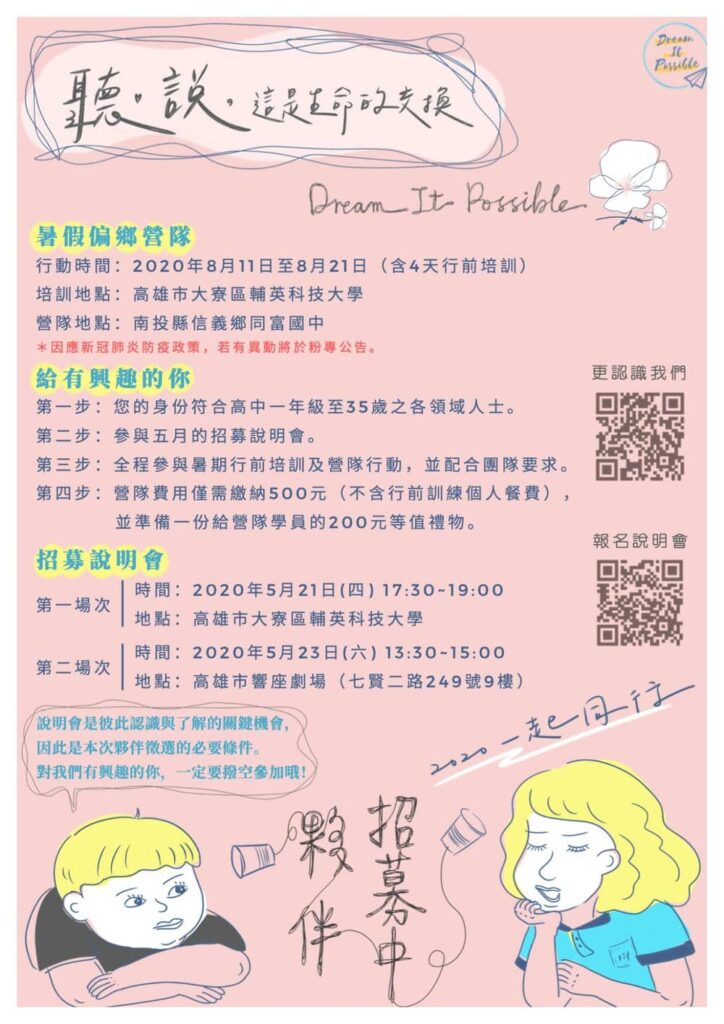 Dream
It
Possible
聽。說，這是生命的交換
Dream It Possible
暑假偏鄉營隊
行動時間：2020年8月11日至8月21日（含4天行前培訓）
培訓地點：高雄市大寮區輔英科技大學
營隊地點：南投縣信義鄉同富國中
＊因應新冠肺炎防疫政策，若有異動將於粉專公告。
給有興趣的你
第一步：您的身份符合高中一年級至35歲之各領域人士。
第二步：參與五月的招募說明會。
第三步：全程參與暑期行前培訓及營隊行動，並配合團隊要求。
第四步：營隊費用僅需繳納500元（不含行前訓練個人餐費），
並準備一份給營隊學員的200元等值禮物。
更認識我們
報名說明會
招募說明會
第一場次
時間：2020年5月21日(四) 17:30~19:00
地點：高雄市大寮區輔英科技大學
第二場次
時間：2020年5月23日(六) 13:30~15:00
地點：高雄市響座劇場（七賢二路249號9樓）
說明會是彼此認識與了解的關鍵機會，
因此是本次夥伴徵選的必要條件。
對我們有興趣的你，一定要撥空參加哦！
2020 一起同行
招募中
夥伴